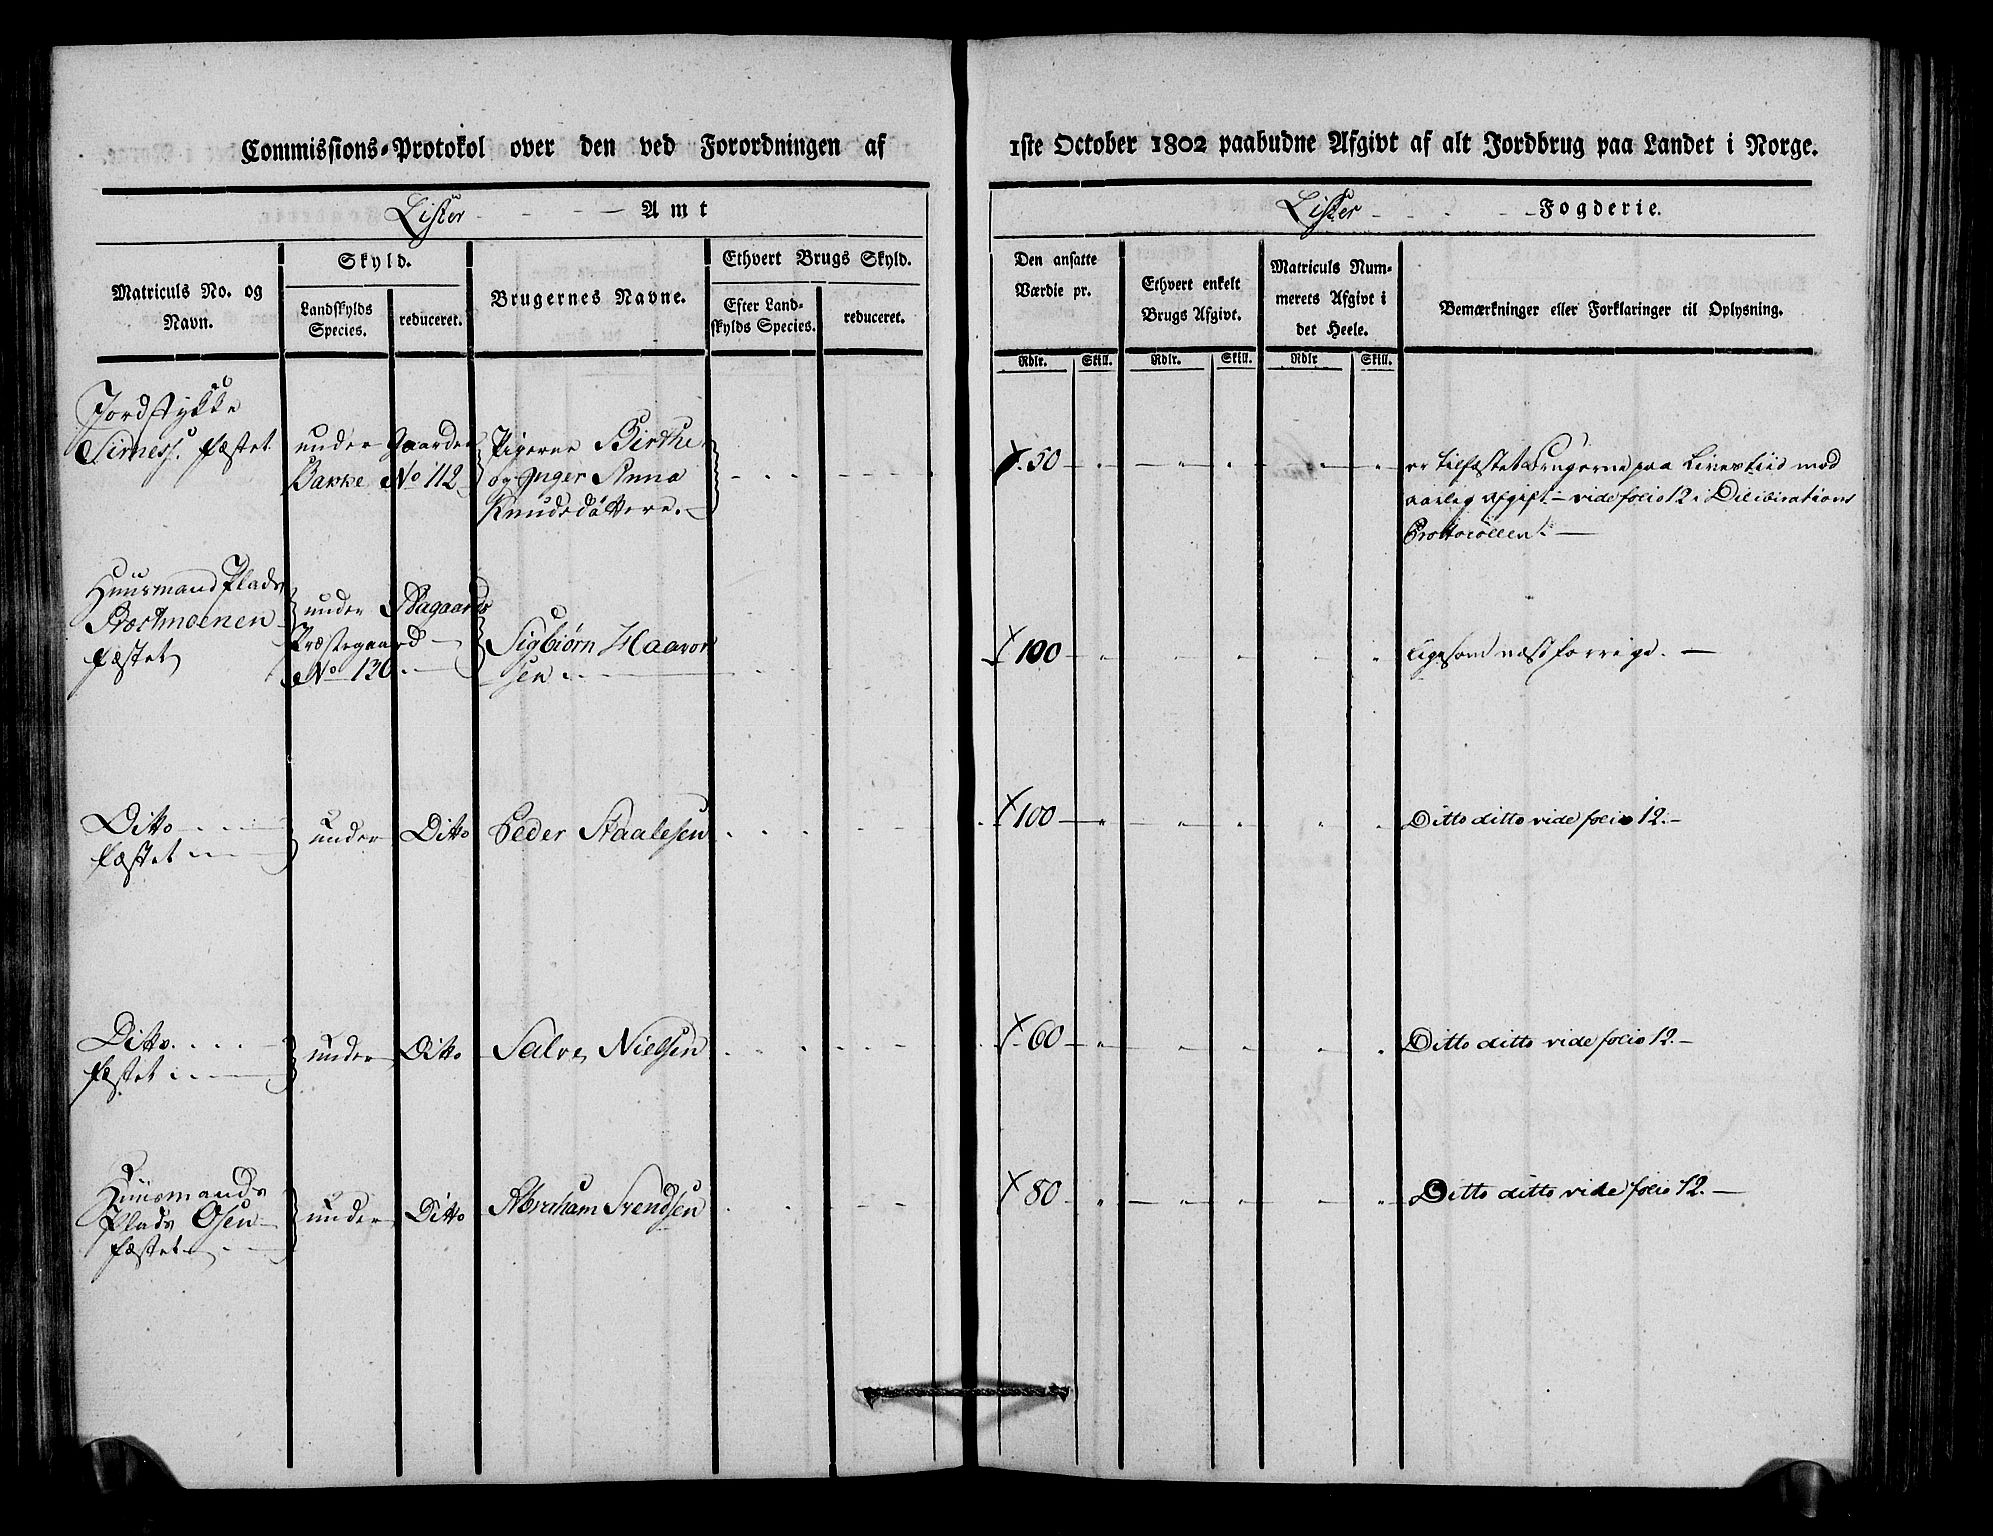 Commissions-Protokol over den ved Forordningen af
1ste October 1802 paabudne Afgivt af alt Jordbrug paa Landet i Norge.
Lister Amt
Lister Fogderie.
Matriculs No. og
Navn.
Skyld.
Landskylds
Species.
reduceret.
Brugernes Navne.
Ethvert Brugs Skyld.
Efter Land-
skylds Species.
reduceret.
Den ansatte
Værdie pr.
Rdlr. Skill.
Ethvert enkelt
Brugs Afgivt.
Rdlr. Skill.
Matriculs Num-
merets Afgivt i
det Heele.
Rdlr Skill.
Bemærkninger eller Forklaringer til Oplysning.
Jordstykke
Sirness. fæstet
under Gaarden
Bakke No 112
Pigerne Birthe
og Inger Anna
Knudsdøttere.
50
er tilfæstet Brugerne paa Livestiid mod
aarlig Afgift - vide folio 12 i Deliberations
Prottocollen.
Huusmand Plads
Præstmoenen
fæstet
under Bagaards
Præstegaard
No 130
Sigbiørn Haavor
sen
100
ligesom næst forrige.
Ditto
fæstet
under Ditto
Peder Staalesen
100
Ditto ditto vide folio 12.
Ditto
fæstet
under Ditto
Salve Nielsen
60
Ditto ditto vide folio 12.
Huusmands
Plads Osen
fæstet
under Ditto
Abraham Svendsen
80
Ditto ditto vide folio 12.